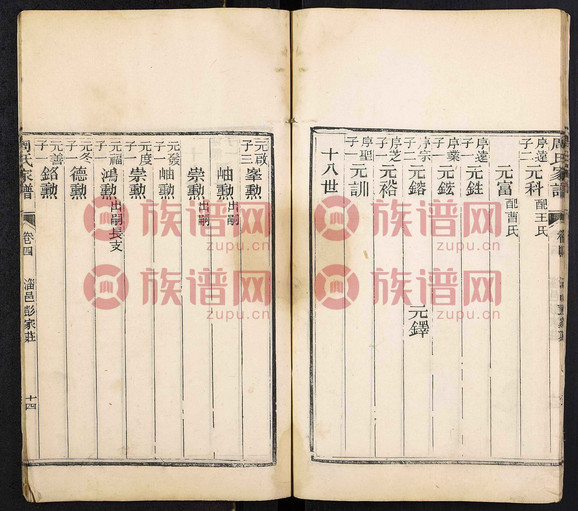 周氏家譜
序逵子二 元科 配王氏
元富 配曹氏
序逵子一 元鉎
序業子一 元鉉
序宗子二 元鎔 元鐸
序芝子一 元褣
序聖子一 元訓
十八世
元啟子三 峯勲
岫勲 出嗣
崇勲 出嗣
元發子一 岫勲
元度子一 崇勲
元福子一 鴻勲 出嗣長支
元冬子一 德勲
元善子一 銘勲
周氏家譜 卷四 淄邑彭家莊 十四
族谱网
zupu.cn
族谱网
zupu.cn
族谱网
zupu.cn
族谱网
zupu.cn